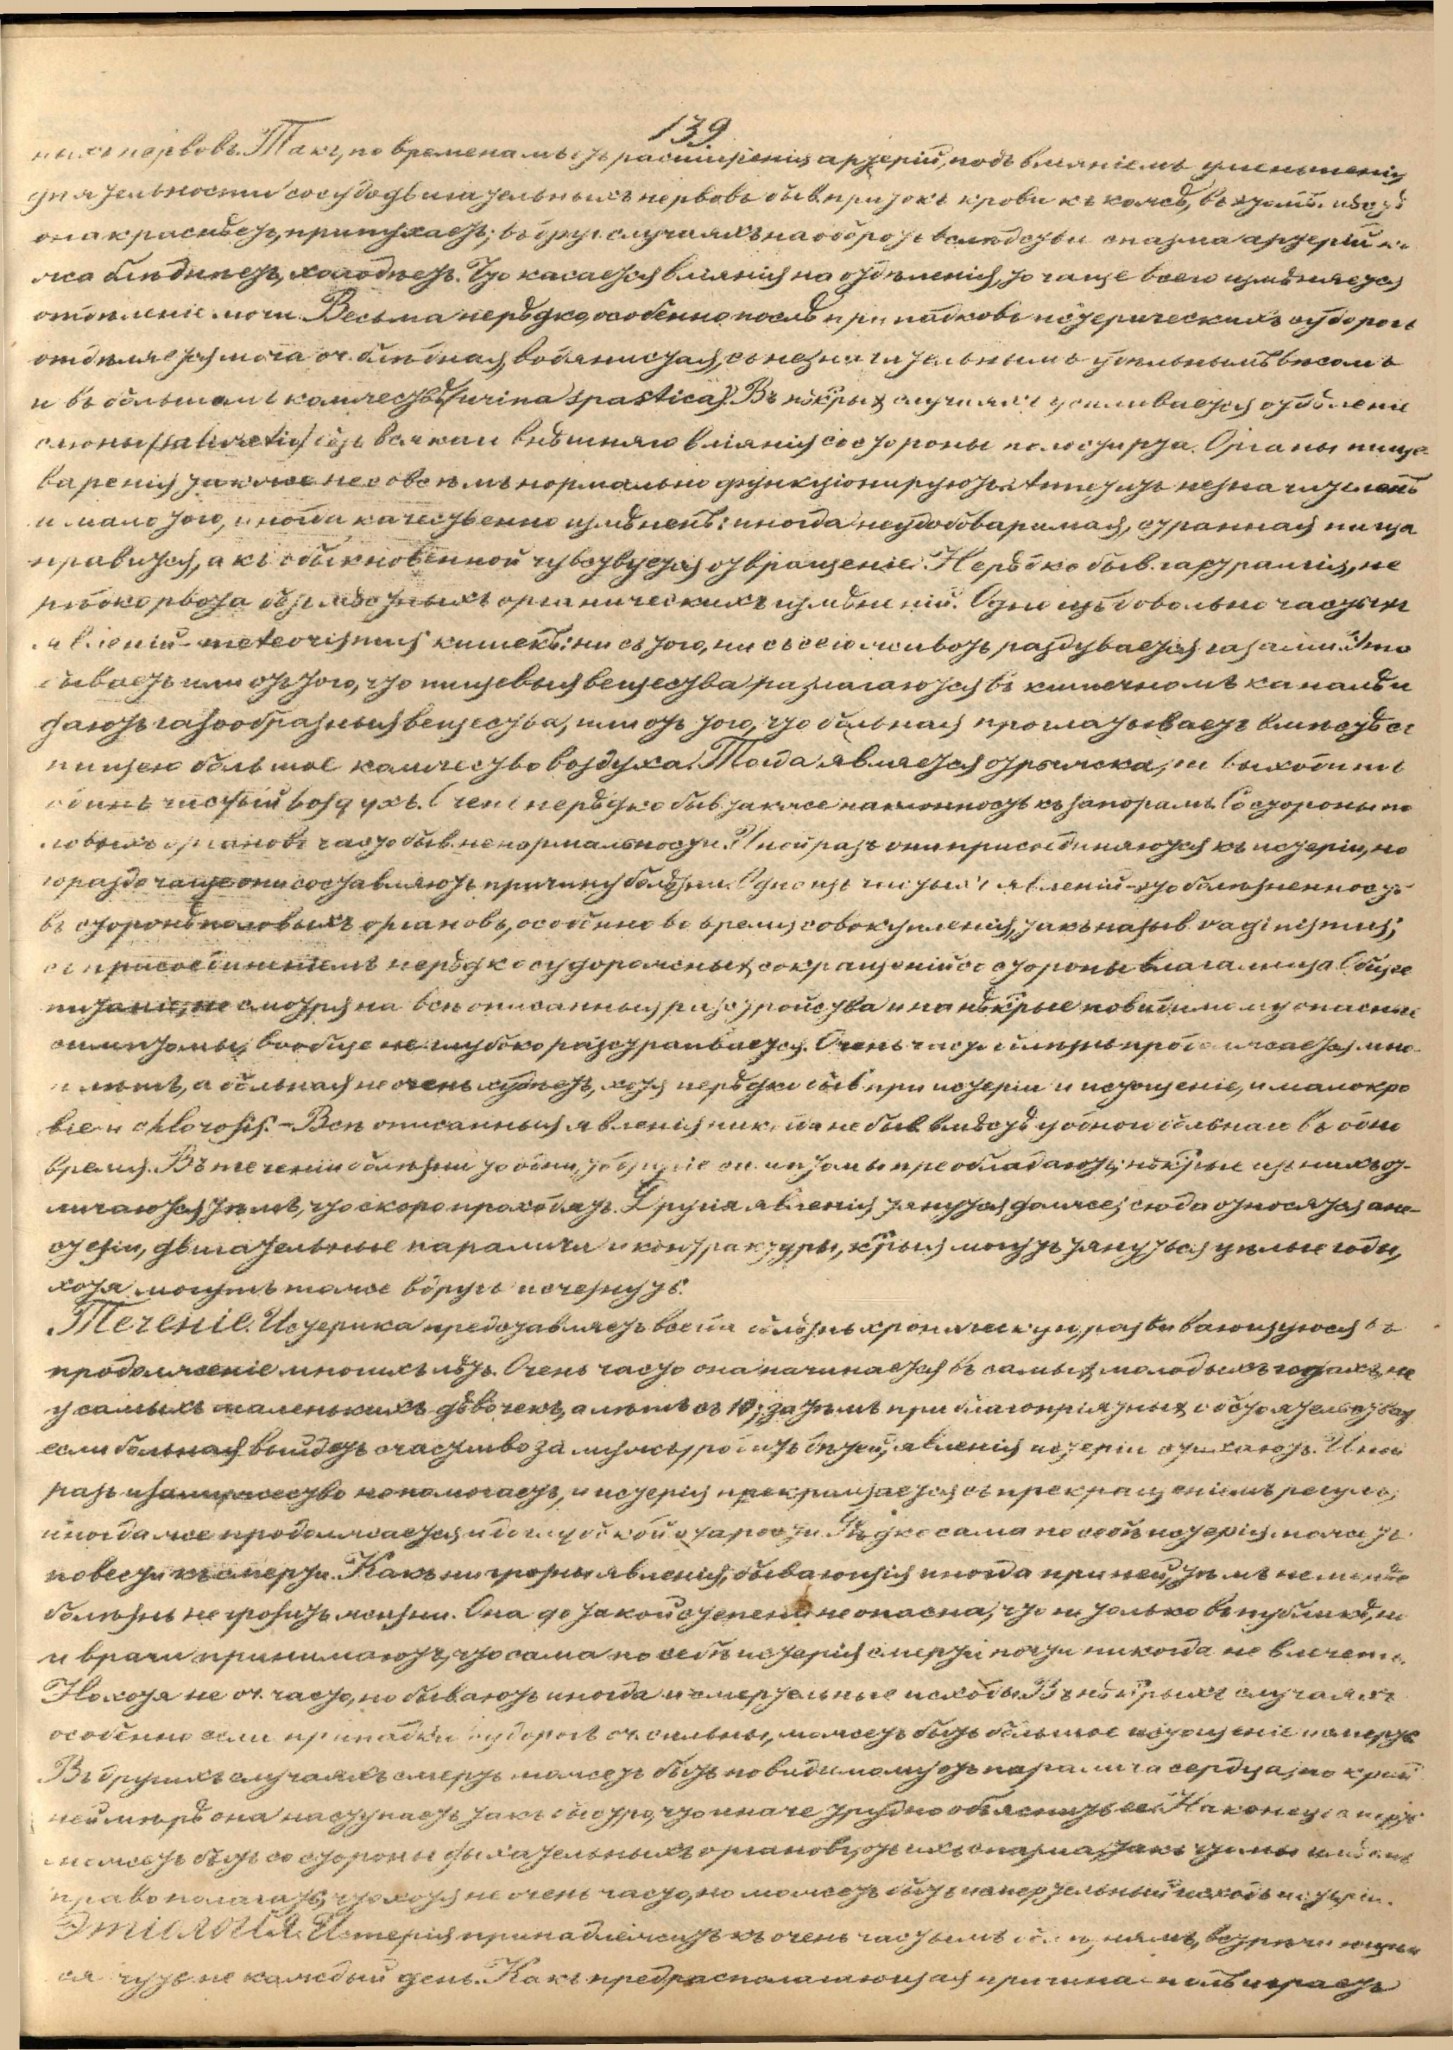 139
ныхъ нервовъ. Такъ, по временамъ отъ расширенія артерій, подъ вліяніемъ уменьшенія
дѣятельности сосудодвигательныхъ нервовъ быв. притокъ крови къ кожѣ, въ этомъ
она краснѣетъ, припухаетъ; въ друг. случаяхъ наоборотъ вслѣдствіи спазма артерій ко-
жа блѣднѣетъ, холоднѣетъ. Что касается вліянія на отдѣленія, то чаще всего измѣняется
отдѣленіе мочи. Весьма нерѣдко, особенно послѣ припадковъ истерическихъ судорогъ
отдѣляется моча оч. блѣдная, водянистая, съ незначительнымъ удѣльнымъ вѣсомъ
и въ большомъ количествѣ (urina spastica). Въ нѣкрыхъ случаяхъ усиливается отдѣленіе
слюны (salivatio) безъ всякаго внѣшняго вліянія со стороны полости рта. Органы пище-
варенія также не совсѣмъ нормально функціонируютъ. Аппетитъ незначителенъ
и мало того, иногда качественно измѣненъ: иногда неудобоваримая, странная пища
нравится, а къ обыкновенной чувствуется отвращеніе. Нерѣдко быв. гастралгія, не
рѣдко рвота безъ мѣстныхъ органическихъ измѣненій. Одно изъ довольно частыхъ
явленій - meteorismus кишекъ: ни съ того, ни съ сего животъ раздувается газами. Это
бываетъ или отъ того, что пищевыя вещества разлагаются въ кишечномъ каналѣ и
даютъ газообразныя вещества, или отъ того, что больная проглатываетъ вмѣстѣ съ
пищею большое количество воздуха. Тогда является отрыжка, и выходитъ
одинъ чистый воздухъ. Очень нерѣдко быв. также наклонность къ запорамъ. Со стороны по-
ловыхъ органовъ часто быв. ненормальности. Иной разъ они присоединяются къ истеріи, но
гораздо чаще они составляютъ причину болѣзни. Одно изъ частыхъ явленій - это болѣзненность
въ сторонѣ половыхъ органовъ, особенно во время совокупленія, такъ назыв. vaginismus;
съ присоединеніемъ нерѣдко судорожныхъ сокращеній со стороны влагалища. Общее
питаніе, не смотря на всѣ описанныя разстройства и на нѣкрые повидимому опасные
симптомы, вообще не глубоко разстраивается. Очень часто болѣзнь продолжается мно-
го лѣтъ, а больная не очень худѣетъ, хотя нерѣдко быв. при истеріи и истощеніе, и малокро
віе и chlorosis. - Всѣ описанныя явленія никогда не быв. вмѣстѣ у одной больной въ одно
время. Въ теченіи болѣзни то одни, то другіе симптомы преобладаютъ; нѣкрые изъ нихъ от-
личаются тѣмъ, что скоро проходятъ. Другія явленія тянутся дольше; сюда относятся ане-
стезіи, двигательные параличи и контрактуры, к-рыя могутъ тянуться цѣлые годы,
хотя могутъ также вдругъ исчезнуть.
Теченіе. Истерика представляетъ всегда болѣзнь хроническую, развивающуюся въ
продолженіе многихъ лѣтъ. Очень часто она начинается въ самыхъ молодыхъ годахъ, не
у самыхъ маленькихъ дѣвочекъ, а лѣтъ съ 10; затѣмъ при благопріятныхъ обстоятельствахъ
если больная выйдетъ счастливо за мужъ, родитъ дѣтей, явленія истеріи стихаютъ. Иной
разъ и замужество не помогаетъ, и истерія прекращается съ прекращеніемъ регулъ,
иногда же продолжается и до глубокой старости. Рѣдко сама по себѣ истерія можетъ
повести къ смерти. Какъ ни грозны явленія, бывающія иногда при ней, тѣмъ не менѣе
болѣзнь не грозитъ жизни. Она до такой степени не опасна, что не только въ публикѣ, но
и врачи принимаютъ, что сама по себѣ истерія смерти почти никогда не влечетъ.
Но хотя не оч. часто, но бываютъ иногда и смертельные исходы. Въ нѣкрыхъ случаяхъ
особенно если припадки судорогъ оч. сильны, можетъ быть большое истощеніе и смерть
Въ другихъ случаяхъ смерть можетъ быть повидимому отъ паралича сердца, по край
ней мѣрѣ она наступаетъ такъ быстро, что иначе трудно объяснить ее. Наконецъ смерть
можетъ быть со стороны дыхательныхъ органовъ, отъ ихъ спазма, такъ что мы имѣемъ
право полагать, что хотя не очень часто, но можетъ быть и смертельный исходъ истеріи.
Этіологія. Истерія принадлежитъ къ очень частымъ болѣзнямъ, встрѣчающим
ся чуть не каждый день. Какъ предрасполагающая причина - полъ играетъ